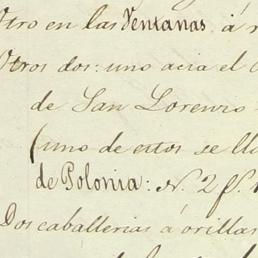 Otro en las Ventanas á
Otros dos: uno acia el
de San Lorenzo
(uno de estos se
de Polonia: N. 2 f.
Dos caballerias á orillas